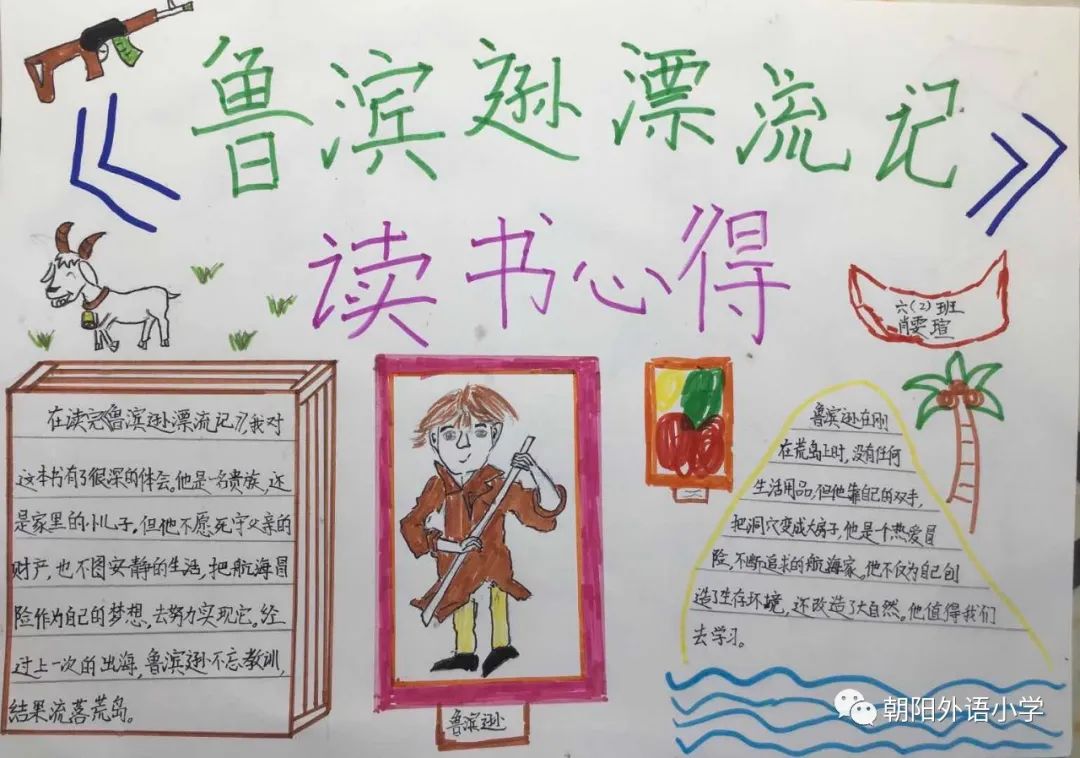 《鲁滨逊漂流记》
读书心得
六(2)班
肖雯瑄
在读完《鲁滨逊漂流记》,我对
这本书有了很深的体会。他是一名贵族,还
是家里的小儿子。但他不愿死守父亲的
财产,也不图安静的生活,把航海冒
险作为自己的梦想,去努力实现它。经
过上一次的出海,鲁滨逊不忘教训,
结果流落荒岛。
鲁滨逊
鲁滨逊在刚
在荒岛上时,没有任何
生活用品,但他靠自己的双手,
把洞穴变成大房子,他是个热爱冒
险,不断追求的航海家。他不仅为自己创
造了生存环境,还改造了大自然。他值得我们
去学习。
朝阳外语小学